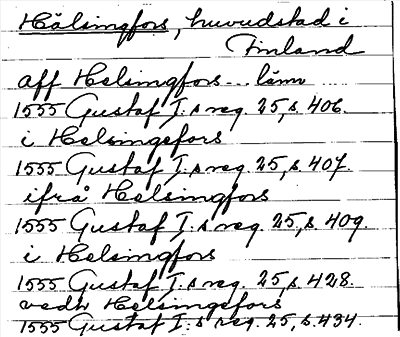 Hälsingfors, huvudstad i
Finland
aff Helsingfors... länn
1555 Gustaf I:s reg. 25, s. 406.
i Helsingefors
1555 Gustaf I:s reg. 25, s. 407.
ifrå Helsingfors
1555 Gustaf I:s reg. 25, s. 409.
i Helsingfors
1555 Gustaf I:s reg. 25, s. 428.
vedh Helsingefors
1555 Gustaf I:s reg. 25, s. 434.